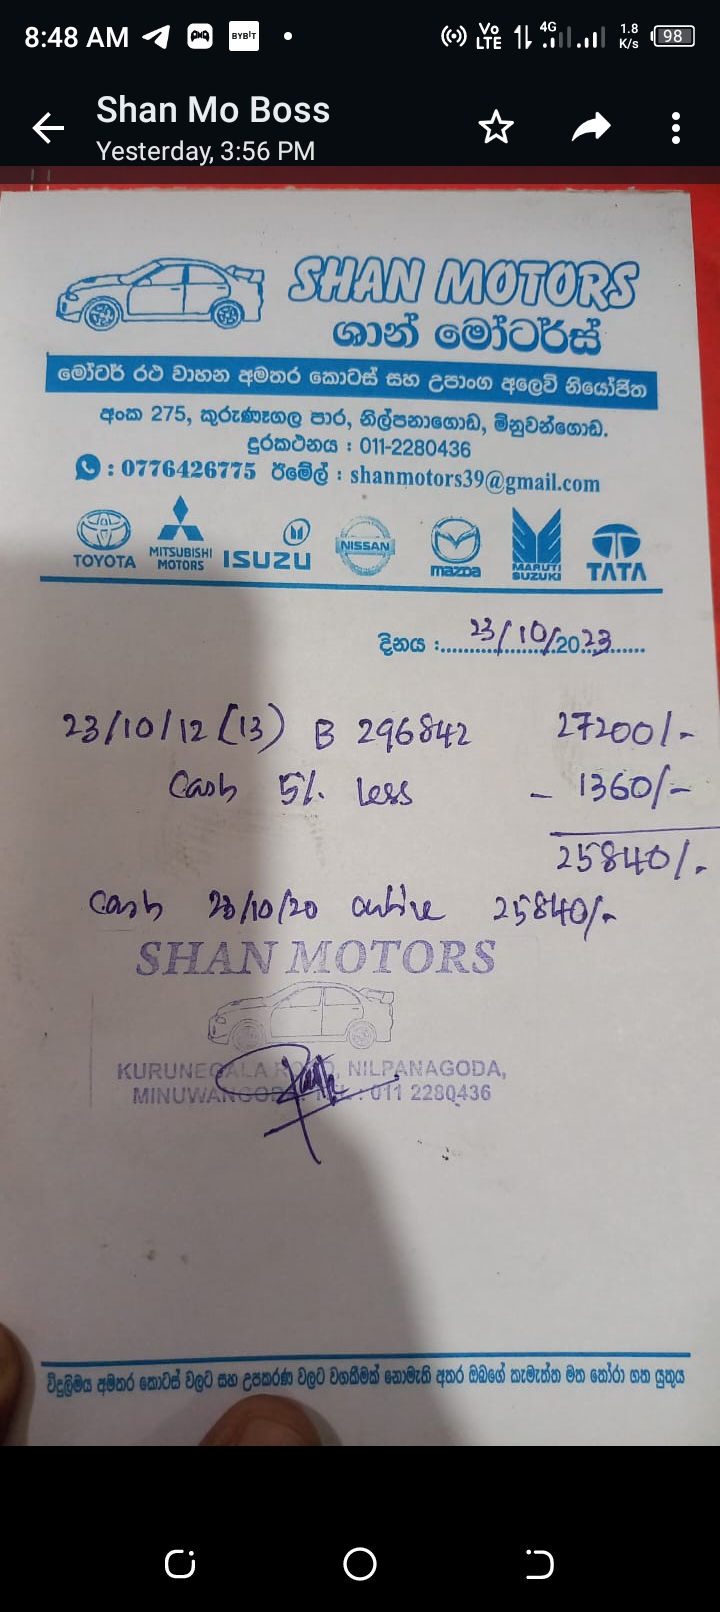 8:48 AM BYBIT Vo LTE 4G 1.8 K/s 98
Shan Mo Boss
Yesterday, 3:56 PM
SHAN MOTORS
ශාන් මෝටර්ස්
මෝටර් රථ වාහන අමතර කොටස් සහ උපාංග අලෙවි නියෝජිත
අංක 275, කුරුණෑගල පාර, නිල්පනාගොඩ, මිනුවන්ගොඩ.
දුරකථනය : 011-2280436
: 0776426775 ඊමේල් : shanmotors39@gmail.com
TOYOTA MITSUBISHI MOTORS ISUZU NISSAN mazda MARUTI SUZUKI TATA
දිනය :........23/10/2023........
23/10/12 (13) B 296842 27200/-
Cash 5% Less - 1360/-
25840/-
Cash 23/10/20 25840/-
SHAN MOTORS
KURUNEGALA ROAD, NILPANAGODA,
MINUWANGODA. TEL : 011 2280436
විදුලිමය අමතර කොටස් වලට සහ උපකරණ වලට වගකීමක් නොමැති අතර ඔබගේ කැමැත්ත මත තෝරා ගත යුතුය